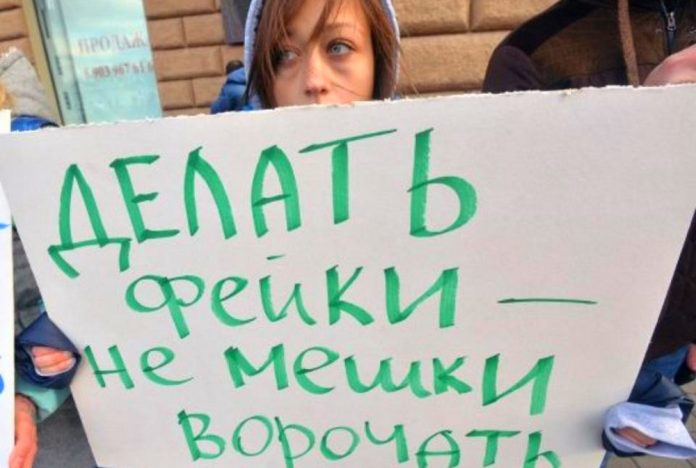 ПРОДАЖ
8 903 967 61 6
ДЕЛАТЬ
ФЕЙКИ —
НЕ МЕШКИ
ВОРОЧАТЬ